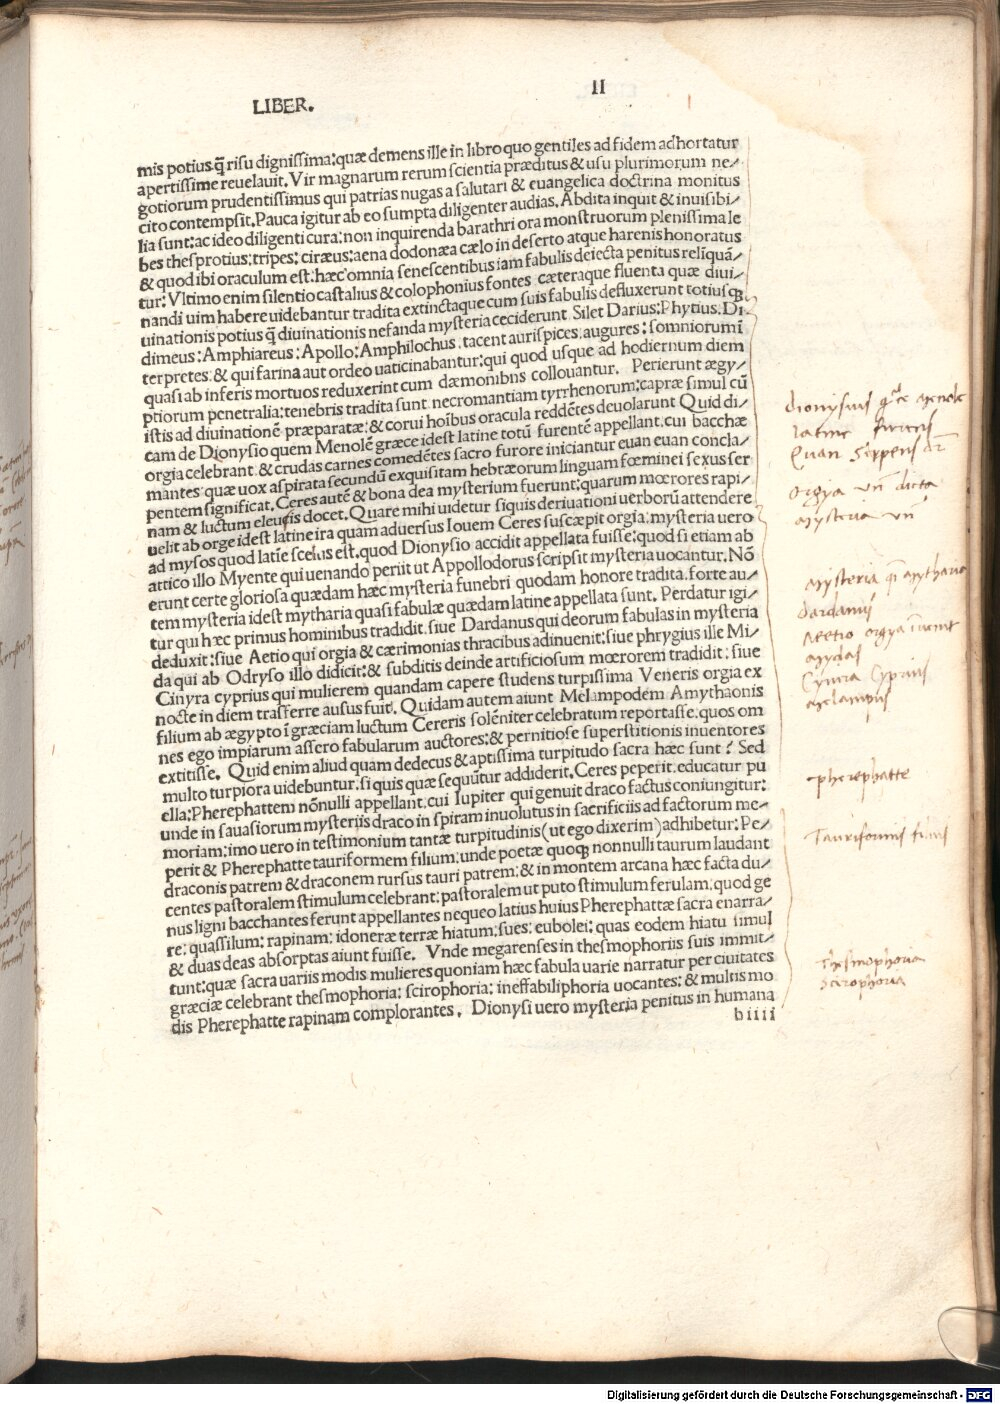 LIBER. II
mis potius q̃ risu dignissima: quæ demens ille in libro quo gentiles ad fidem adhortatur
apertissime reuelauit. Vir magnarum rerum scientia præditus & usu plurimorum ne⸗
gotiorum prudentissimus qui patrias nugas a salutari & euangelica doctrina monitus
cito contempsit. Pauca igitur ab eo sumpta diligenter audias. Abdita inquit & inuisibi⸗
lia sunt: ac ideo diligenti cura: non inquirenda barathri ora monstruorum plenissima le
bes thesprotius: tripes: ciræus: aena dodonæa cælo in deserto atque harenis honoratus
& quod ibi oraculum est: hæc omnia senescentibus iam fabulis deiecta penitus relĩquã⸗
tur: Vltimo enim silentio castalius & colophonius fontes cæteraque fluenta quæ diui⸗
nandi uim habere uidebantur tradita extinctaque cum suis fabulis defluxerunt totiusq;
uinationis potius q̃ diuinationis nefanda mysteria ceciderunt. Silet Darius: Phytius. Di
dimeus: Amphiareus: Apollo: Amphilochus. tacent aurispices. augures: somniorum ĩ
terpretes: & qui farina aut ordeo uaticinabantur: qui quod usque ad hodiernum diem
quasi ab inferis mortuos reduxerint cum dæmonibns collouantur. Perierunt ægy⸗
ptiorum penetralia: tenebris tradita sunt necromantiam tyrrhenorum: capræ simul cũ
istis ad diuinationẽ præparatæ: & corui hoĩbus oracula reddẽtes deuolarunt Quid di⸗
cam de Dionysio quem Menolẽ græce idest latine totũ furentẽ appellant. cui bacchæ
orgia celebrant. & crudas carnes comedẽtes sacro furore iniciantur euan euan concla⸗
mantes: quæ uox aspirata secundũ exquisitam hebræorum linguam fœminei sexus ser
pentem significat. Ceres autẽ & bona dea mysterium fuerunt: quarum mœrores rapi⸗
nam & luctum eleusis docet. Quare mihi uidetur siquis deriuationi uerborũ attendere
uelit ab orge idest latine ira quam aduersus Iouem Ceres suscæpit orgia: mysteria uero
ad mysos quod latĩe scelus est. quod Dionysio accidit appellata fuisse: quod si etiam ab
attico illo Myente qui uenando periit ut Appollodorus scripsit mysteria uocantur. Nõ
erunt certe gloriosa quædam hæc mysteria funebri quodam honore tradita. forte au⸗
tem mysteria idest mytharia quasi fabulæ quædam latine appellata sunt. Perdatur igi⸗
tur qui hæc primus hominibus tradidit. siue Dardanus qui deorum fabulas in mysteria
deduxit: siue Aetio qui orgia & cærimonias thracibus adinuenit: siue phrygius ille Mi⸗
da qui ab Odryso illo didicit: & subditis deinde artificiosum mœrorem tradidit: siue
Cinyra cyprius qui mulierem quandam capere studens turpissima Veneris orgia ex
nocte in diem trãsferre ausus fuit. Quidam autem aiunt Melampodem Amythaonis
filium ab ægypto ĩ græciam luctum Cereris solẽniter celebratum reportasse. quos om
nes ego impiarum assero fabularum auctores: & pernitiose superstitionis inuentores
extitisse. Quid enim aliud quam dedecus & aptissima turpitudo sacra hæc sunt? Sed
multo turpiora uidebuntur: si quis quæ sequũtur addiderit. Ceres peperit. educatur pu
ella: Pherephattem nõnulli appellant. cui Iupiter qui genuit draco factus coniungitur:
unde in sauasiorum mysteriis draco in spiram inuolutus in sacrificiis ad factorum me⸗
moriam: imo uero in testimonium tantæ turpitudinis (ut ego dixerim) adhibetur: Pe⸗
perit & Pherephatte tauriformem filium: unde poetæ quoq; nonnulli taurum laudant
draconis patrem & draconem rursus tauri patrem: & in montem arcana hæc facta du⸗
centes pastoralem stimulum celebrant: pastoralem ut puto stimulum ferulam. quod ge
nus ligni bacchantes ferunt appellantes nequeo latius huius Pherephattæ sacra enarra⸗
re: quassilum: rapinam: idoneræ terræ hiatum: sues: eubolei: quas eodem hiatu simul
& duas deas absorptas aiunt fuisse. Vnde megarenses in thesmophoriis suis immit⸗
tunt: quæ sacra uariis modis mulieres quoniam hæc fabula uarie narratur per ciuitates
græciæ celebrant thesmophoria: scirophoria: ineffabiliphoria uocantes: & multis mo
dis Pherephatte rapinam complorantes. Dionysi uero mysteria penitus in humana
biiii
Dionysius
latine furens
Euan serpens
orgya dicta
mysteria
mysteria mytharia
Dardanus
Aetio orgya inuenit
mydas
Cynira Cyprius
melampus
pherephatte
Tauriformis filius
Thesmophoria
Scirophoria
Digitalisierung gefördert durch die Deutsche Forschungsgemeinschaft - DFG